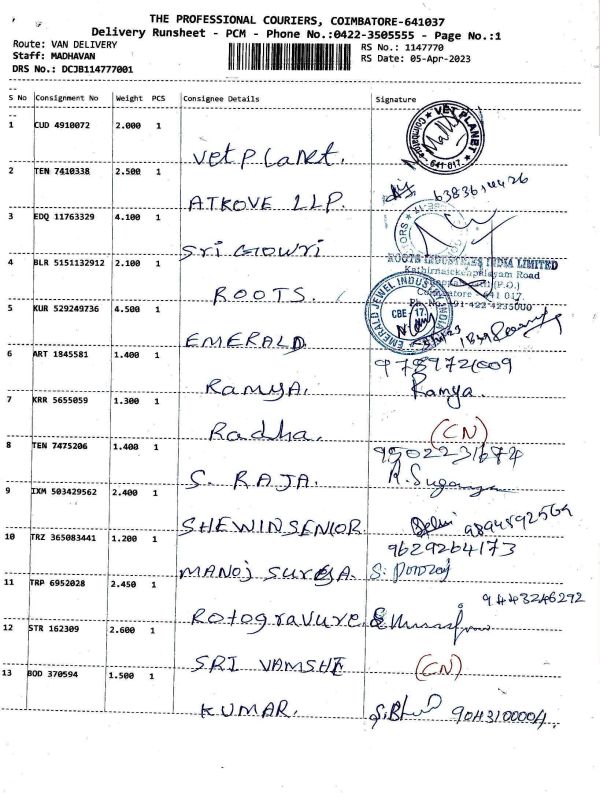 THE PROFESSIONAL COURIERS, COIMBATORE-641037
Delivery Runsheet - PCM - Phone No.:0422-3505555 - Page No.:1
Route: VAN DELIVERY
RS No.: 1147770
Staff: MADHAVAN
RS Date: 05-Apr-2023
DRS No.: DCJB114777001
S No Consignment No Weight PCS Consignee Details Signature
1 CUD 4910072 2.000 1
VET PLANET
Coimbatore
641 017.
vet Planet.
2 TEN 7410338 2.500 1
ATKOVE LLP.
3 EDQ 11763329 4.100 1
Sri Gowri
ROOTS INDUSTRIES INDIA LIMITED
Kathirnaickenpalayam Road
4 BLR 5151132912 2.100 1
(P.O.)
Coimbatore - 641 017.
Ph. No. +91-422-4235000
ROOTS.
5 KUR 529249736 4.500 1
EMERALD JEWEL INDUSTRY INDIA
CBE 17
EMERALD
6 ART 1845581 1.400 1
RAMYA.
Ramya.
7 KRR 5655059 1.300 1
Radha.
(CN)
8 TEN 7475206 1.400 1
S. RAJA.
9 IXM 503429562 2.400 1
SHEWINSENIOR
9894892564
10 TRZ 365083441 1.200 1
9629264173
MANOJ SURYA.
11 TRP 6952028 2.450 1
9443246292
Rotogravure
12 STR 162309 2.600 1
SRI VAMSHE
(CN)
13 BOD 370594 1.500 1
KUMAR.
9043100004.